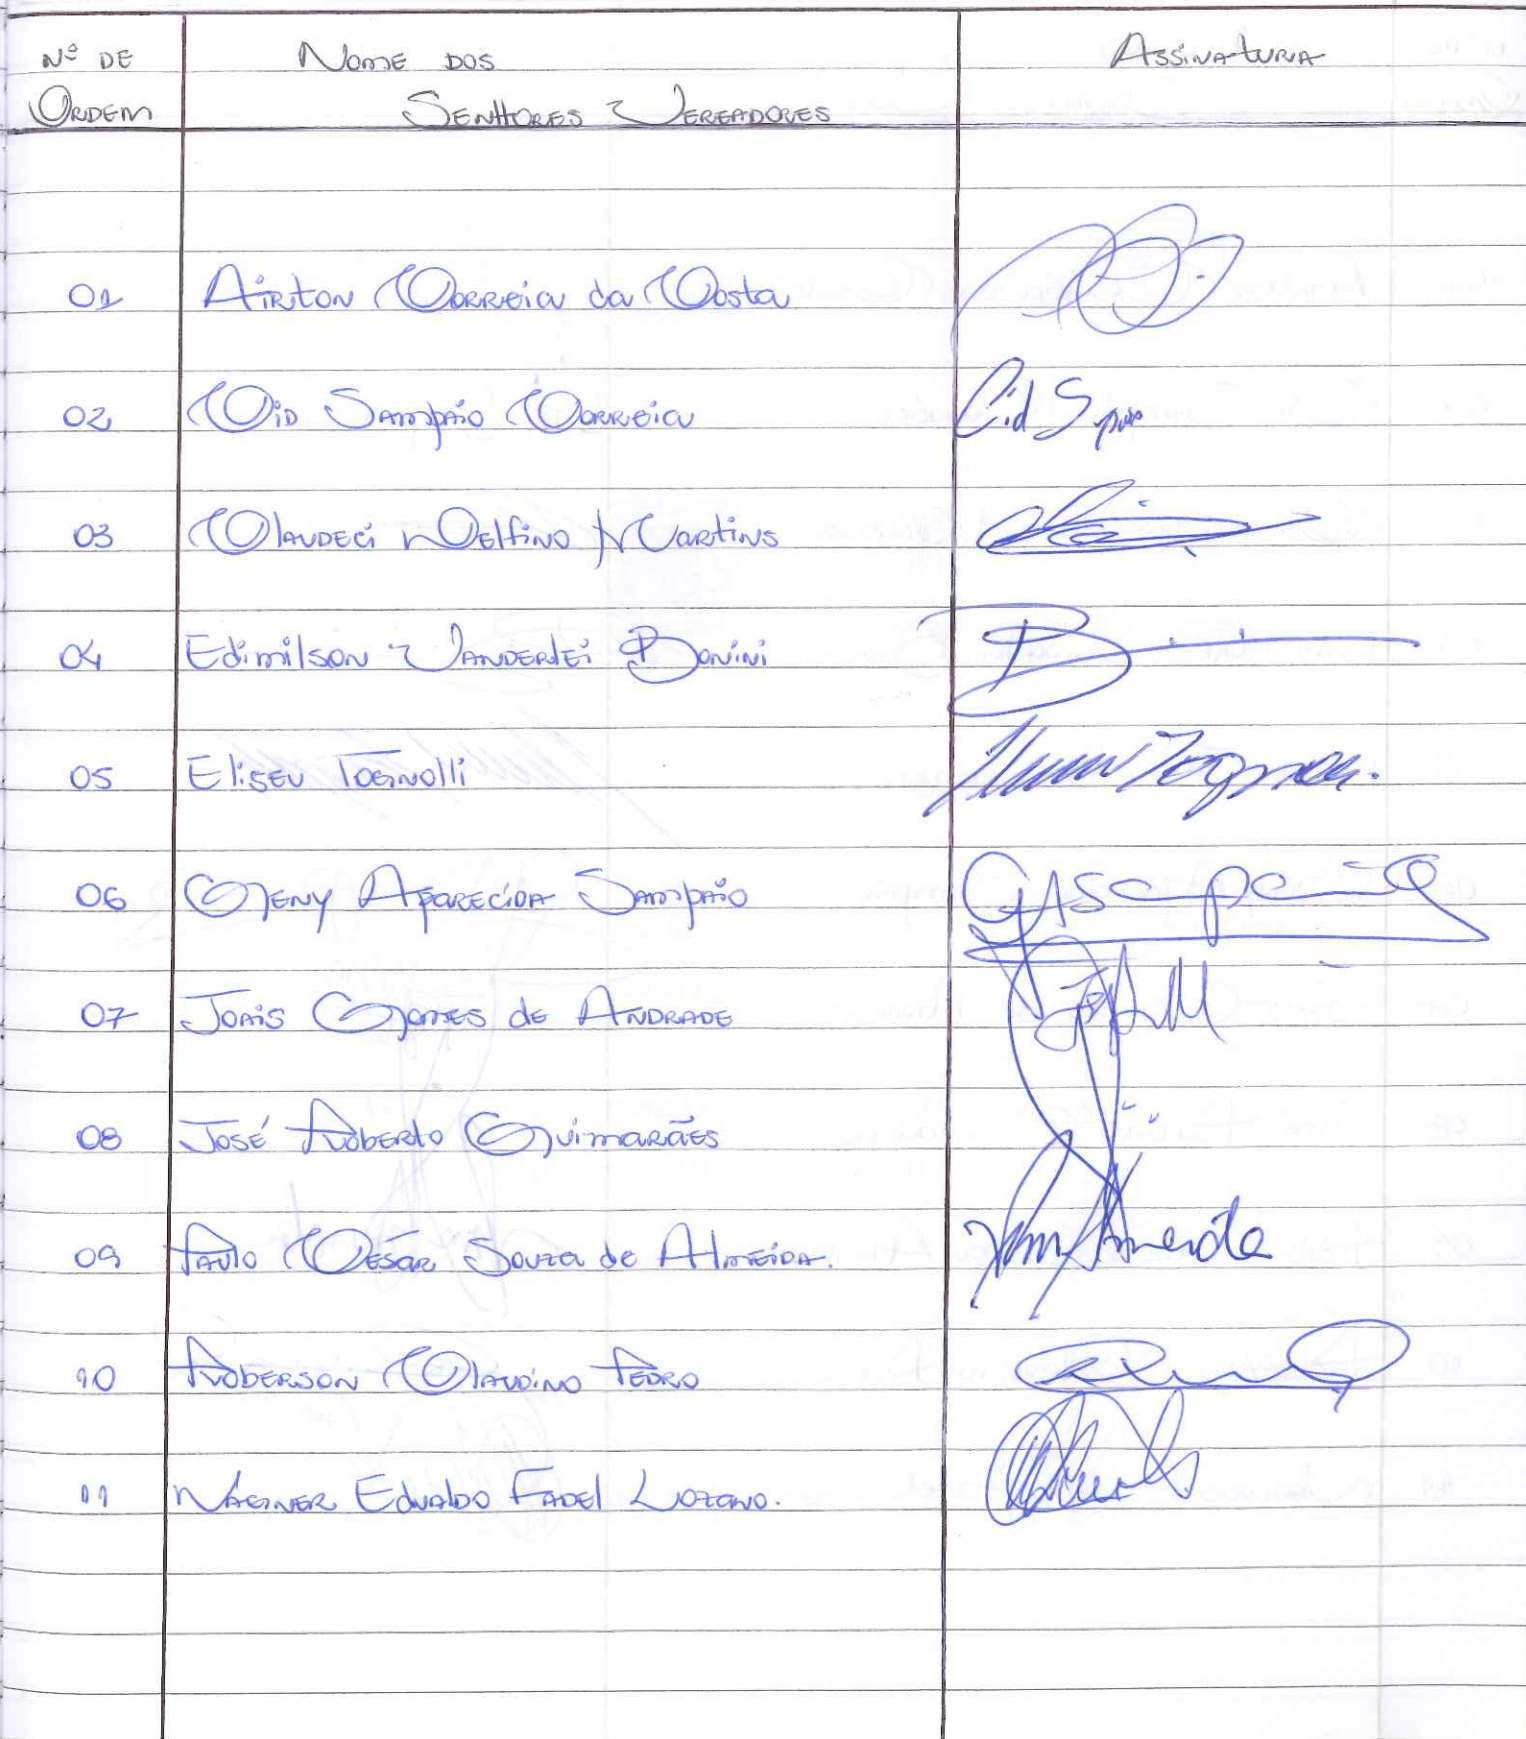 Nº DE NOME DOS ASSINATURA
ORDEM SENHORES VEREADORES
01 Airton Correia da Costa
02 Cid Sampaio Correia Cid S
03 Claudeci Delfino Martins
04 Edimilson Vanderlei Bonini
05 Eliseu Tognolli
06 Geny Aparecida Sampaio
07 Joais Gomes de Andrade
08 José Roberto Guimarães
09 Paulo César Souza de Almeida. Almeida
10 Roberson Claudino Pedro
11 Wagner Edvaldo Fadel Lozano.